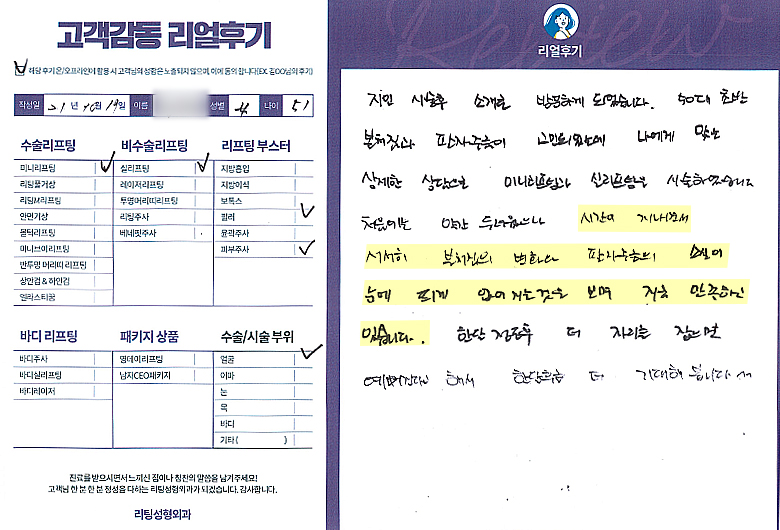 고객감동 리얼후기
해당 후기 온/오프라인에 활용 시 고객님의 성함은 노출되지 않으며, 이에 동의 합니다(EX. 김OO님의 후기)
작성일 21년 10월 19일 이름 성별 여 나이 51
수술리프팅
미니리프팅
리팅풀거상
리팅M리프팅
안면거상
몰딕리프팅
미니브이리프팅
반투명 머리띠 리프팅
상안검 & 하안검
엘라스티꿈
비수술리프팅
실리프팅
레이저리프팅
투명머리띠리프팅
리팅주사
베네핏주사
리프팅 부스터
지방흡입
지방이식
보톡스
필러
윤곽주사
피부주사
바디 리프팅
바디주사
바디실리프팅
바디레이저
패키지 상품
영데이리프팅
남자CEO패키지
수술/시술 부위
얼굴
이마
눈
목
바디
기타( )
진료를 받으시면서 느끼신 점이나 칭찬의 말씀을 남겨주세요!
고객님 한 분 한 분 정성을 다하는 리팅성형외과가 되겠습니다. 감사합니다.
리팅성형외과
Review
리얼후기
지인 시술후 소개로 방문하게 되었습니다. 50대 초반
볼처짐과 팔자주름이 고민이었는데 나에게 맞는
상세한 상담으로 미니리프팅과 실리프팅을 시술하였습니다
처음에는 약간 두려웠으나 시간이 지나면서
서서히 볼처짐의 변화와 팔자주름의 소실이
눈에 띄게 없어지는것을 보며 지금 만족하고
있습니다. 한달 정도후 더 자리를 잡으면
예뻐진다고 해서 한달후쯤 더 기대해 봅니다